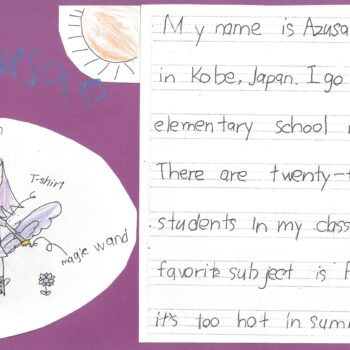 T-shirt
magic wand
My name is Azusa
in Kobe, Japan. I go
elementary school
There are twenty-
students in my class
favorite subject is
it's too hot in sum